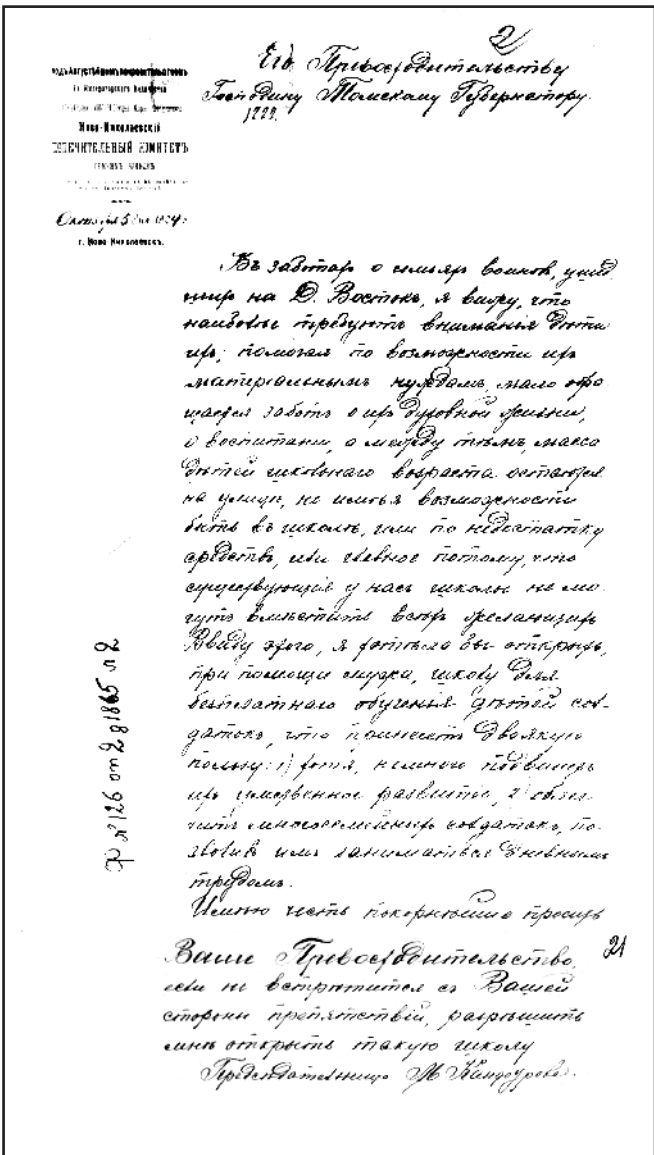 2
Его Превосходительству
Господину Томскому Губернатору.
1799.
Ново-Николаевскій
ПОПЕЧИТЕЛЬНЫЙ КОМИТЕТЪ
Октября 5 дня 1904 г.
г. Ново Николаевскъ.
Въ заботахъ о семьяхъ воиновъ, ушед
шихъ на Д. Востокъ, я вижу, что
наиболѣе требуютъ вниманія дѣти
ихъ; помогая по возможности ихъ
матеріальнымъ нуждамъ, мало обра
щается заботъ о ихъ духовной жизни,
о воспитаніи, а между тѣмъ, масса
дѣтей школьнаго возраста остаются
на улицѣ, не имѣя возможности
быть въ школѣ, или по недостатку
средствъ, или главное потому, что
существующія у насъ школы не мо-
гутъ вмѣстить всѣхъ желающихъ
Ввиду этого, я хотѣла бы открыть,
при помощи мужа, школу для
безплатнаго обученья дѣтей сол-
датокъ, что принесетъ двоякую
пользу: 1) хотя, немного подвинетъ
ихъ умственное развитіе, 2) облег-
читъ многосемейныхъ солдатокъ, по-
зволивъ имъ заниматься дневнымъ
трудомъ.
Имѣю честь покорнѣйше просить
21
Ваше Превосходительство,
если не встрѣтится съ Вашей
стороны препятствій, разрѣшить
мнѣ открыть такую школу
Предсѣдательница М
Ф № 126 оп 2 д 1865 л 2